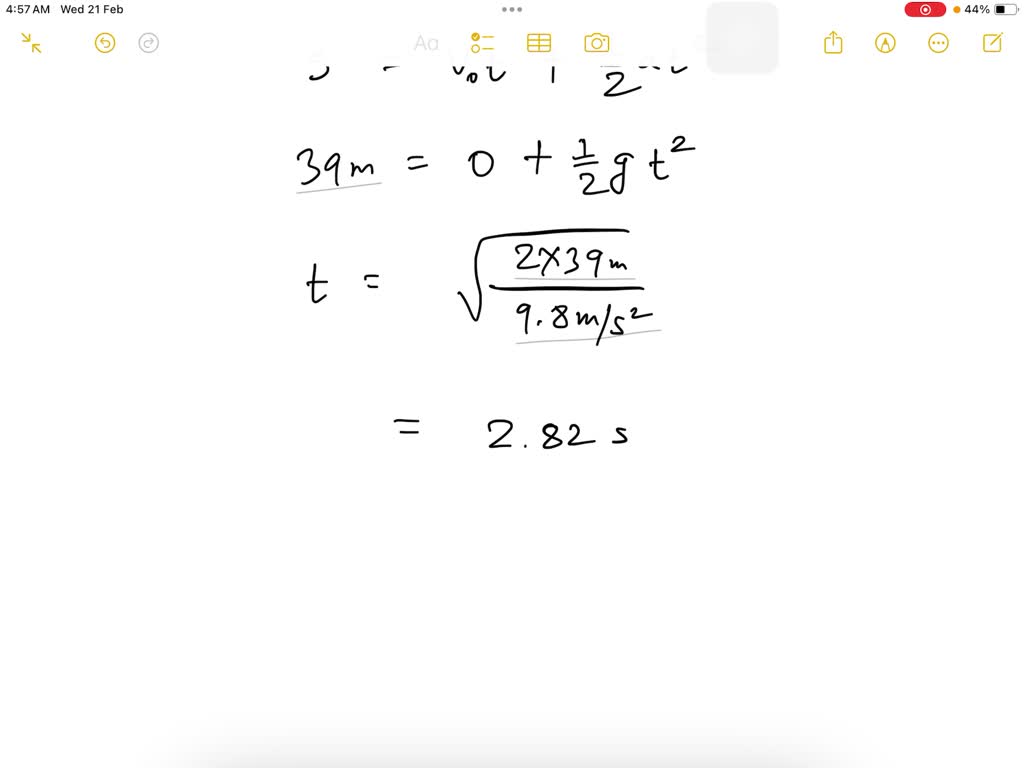 4:57 AM Wed 21 Feb
44%
Aa
39m = 0 + 1/2 g t²
t = √(2×39m / 9.8m/s²)
= 2.82 s